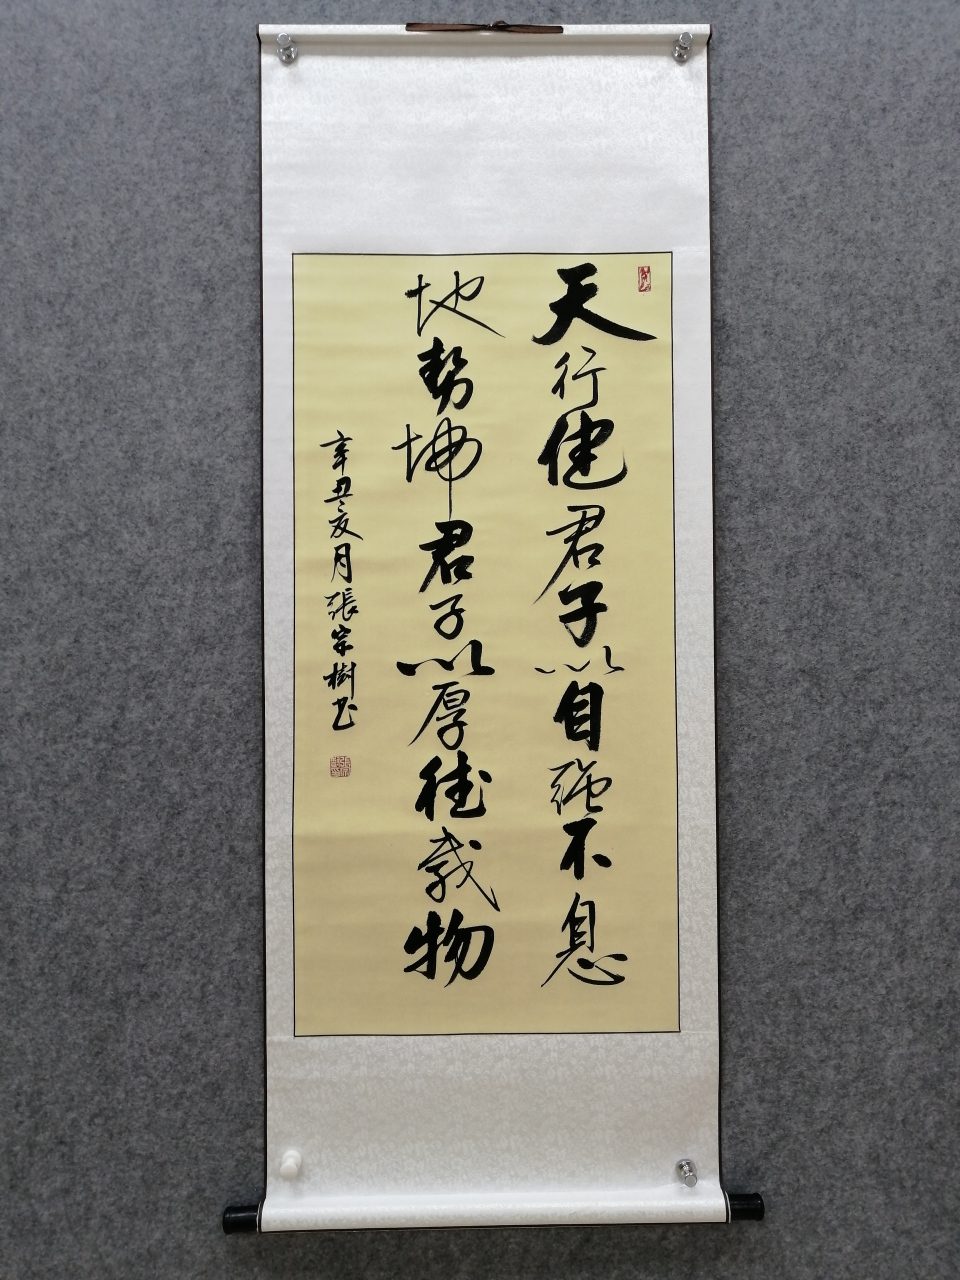 天行健君子以自强不息
地势坤君子以厚德载物
辛丑亥月張宗樹书